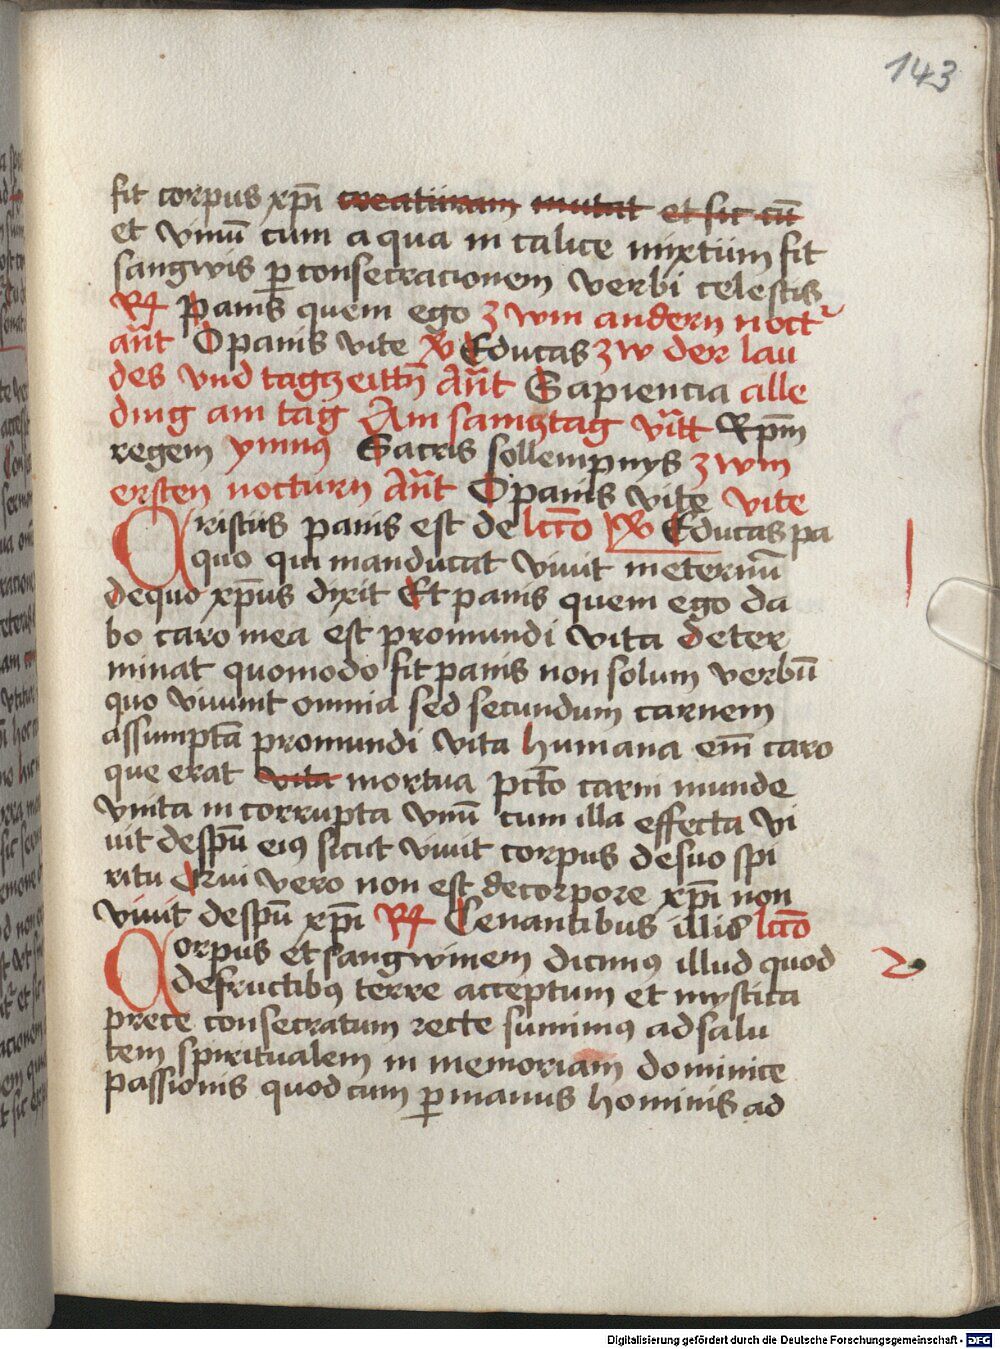 143
fit corpus xp̄i creaturam mutat et fit cū
et vinū cum aqua in calice mixtum fit
sangwis ꝑ consecracionem verbi celestis
R̸ Panis quem ego zwm andern noct᷑
an̄t O panis vite V̸ Educas zw der lau
des vnd tagzeittn̄ An̄t Sapiencia alle
ding am tag Am samtztag vītt Rp̄m
regem ymnus Sacris sollempnys zwm
ersten nocturn An̄t O panis vite vite
Cristus panis est de lcc̄o V̸ Educas pa
quo qui manducat vivit in eternū
de quo xp̄us dixit Et panis quem ego da
bo caro mea est pro mundi vita deter
minat quomodo fit panis non solum verbū
quo vivunt omnia sed secundum carnem
assumptā pro mundi vita humana em̄ caro
que erat vita mortua pctō carni munde
vnita incorrupta vnū cum illa effecta vi
uit de spū eius sicut viuit corpus de suo spi
ritu Qui vero non est de corpore xp̄i non
viuit de spū xp̄i R̸ Cenantibus illis lcc̄o
Corpus et sangwinem dicimus illud quod 2
de fructibus terre acceptum et mystica
prece consecratum recte sumimus ad salu
tem spiritualem in memoriam dominice
passionis quod cum ꝑ manus hominis ad
Digitalisierung gefördert durch die Deutsche Forschungsgemeinschaft - DFG